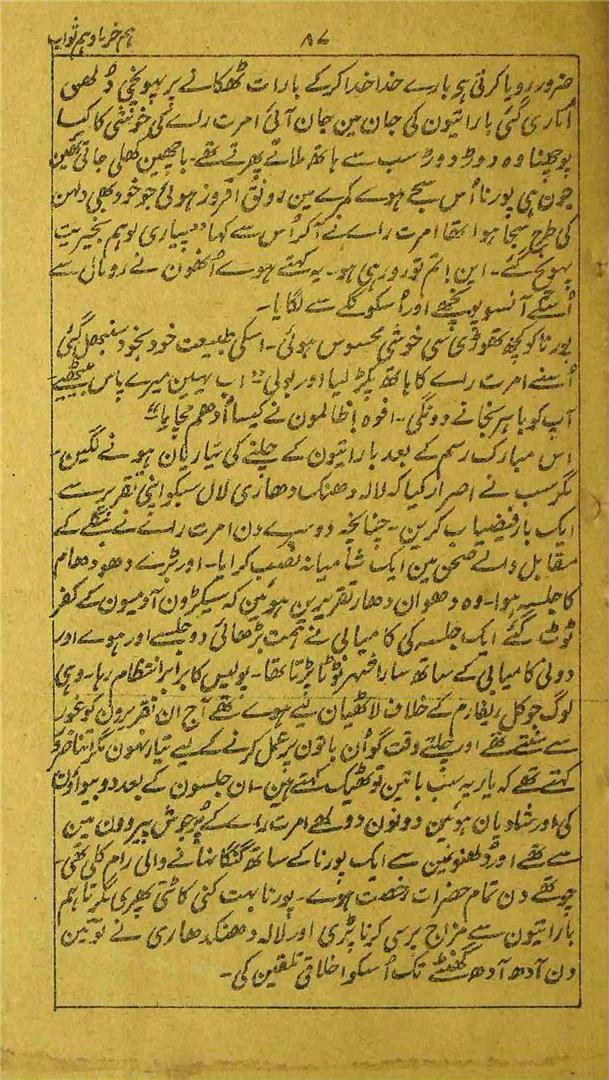 ۸۷
ہم خرما وہم ثواب
ضرور رویا کرتی ہی بارے خدا خدا کرکے بارات ٹھکانے پر پہونچی دُلھن
اُتاری گئی باراتیون کی جان مین جان آئی امرت رائے کی خوشی کا کیا
پوچھنا وہ دوڑ دوڑ سب سے ہاتھ ملاتے پھرتے تھے۔ باچھین کھلی جاتی تھین
جون ہی پورنا اُس سجے ہوے کمرے مین رونق افروز ہوئی جو خود بھی دلہن
کی طرح سجا ہوا تھا امرت رائے نے آکر اُس سے کہا ”پیاری لو ہم بخیریت
پہونچ گئے۔ این! تم تو رو رہی ہو۔ یہ کہتے ہوے اُنھون نے رومال سے
اُسکے آنسو پونچھے اور اُسکو گلے سے لگایا۔
پورنا کو کچھ تھوڑی سی خوشی محسوس ہوئی۔ اسکی طبیعت خود بخود سنبھل گئی
اُسنے امرت رائے کا ہاتھ پکڑ لیا اور بولی ”اب یہین میرے پاس بیٹھیے
آپ کو باہر نجانے دونگی۔ افوہ! ظالمون نے کیسا اُدھم مچایا“
اس مبارک رسم کے بعد باراتیون کے چلنے کی تیاریان ہونے لگین۔
مگر سب نے اصرار کیا کہ لالہ دھنک دھاری لال سبکو اپنی تقریر سے
ایک بار فیضیاب کرین۔ چنانچہ دوسرے دن امرت رائے نے بنگلے کے
مقابل والے صحن مین ایک شامیانہ نصب کرایا۔ اور بڑے دھوم دھام
کا جلسہ ہوا۔ وہ دھوان دھار تقریرین ہوئین کہ سیکڑون آدمیون کے کفر
ٹوٹ گئے ایک جلسہ کی کامیابی نے ہمت بڑھائی دو جلسے اور ہوے اور
دونی کامیابی کے ساتھ سارا شہر ٹوٹا پڑتا تھا۔ پولیس کا برابر انتظام رہا۔ وہی
لوگ جو کل ریفارم کے خلاف لاٹھیان لیے ہوے تھے آج ان تقریرون کو غور
سے سنتے تھے اور چلتے وقت گو اُن باتون پر عمل کرنے کے لیے تیار نہون مگر اتنا ضرور
کہتے تھے کہ یار یہ سب باتین تو ٹھیک کہتے ہین۔ ان جلسون کے بعد دو بیواؤن
کی اور شادیان ہوئین دونون دولھے امرت رائے کے پُرجوش پیروون مین
سے تھے اور دُلھنون مین سے ایک پورنا کے ساتھ گنگا نہانے والی رام کلی تھی۔
چوتھے دن تمام حضرات رخصت ہوے۔ پورنا بہت کنی کاٹتی پھری مگر تاہم
باراتیون سے مزاج پرسی کرنا پڑی اور لالہ دھنکدھاری نے تو تین
دن آدھ آدھ گھنٹے تک اُسکو اخلاقی تلقین کی۔